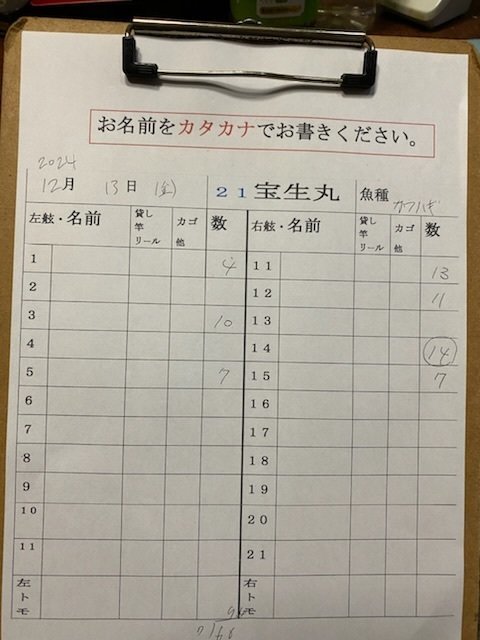 お名前をカタカナでお書きください。
2024
12月 13日 (金) 21宝生丸 魚種 カワハギ
左舷・名前 貸し竿リール カゴ他 数 右舷・名前 貸し竿リール カゴ他 数
1 4 11 13
2 12 11
3 10 13
4 14 14
5 7 15 7
6 16
7 17
8 18
9 19
10 20
11 21
左トモ 右トモ
7/66